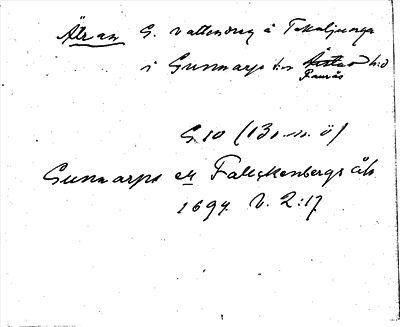 Ätran G. vattendrag å Tokaljunga
i Gunnarps s:n Årstad h:d
Faurås
G 10 (13, m. ö)
Gunnarps ek Falckenbergs åhs
1694. V. 2:17